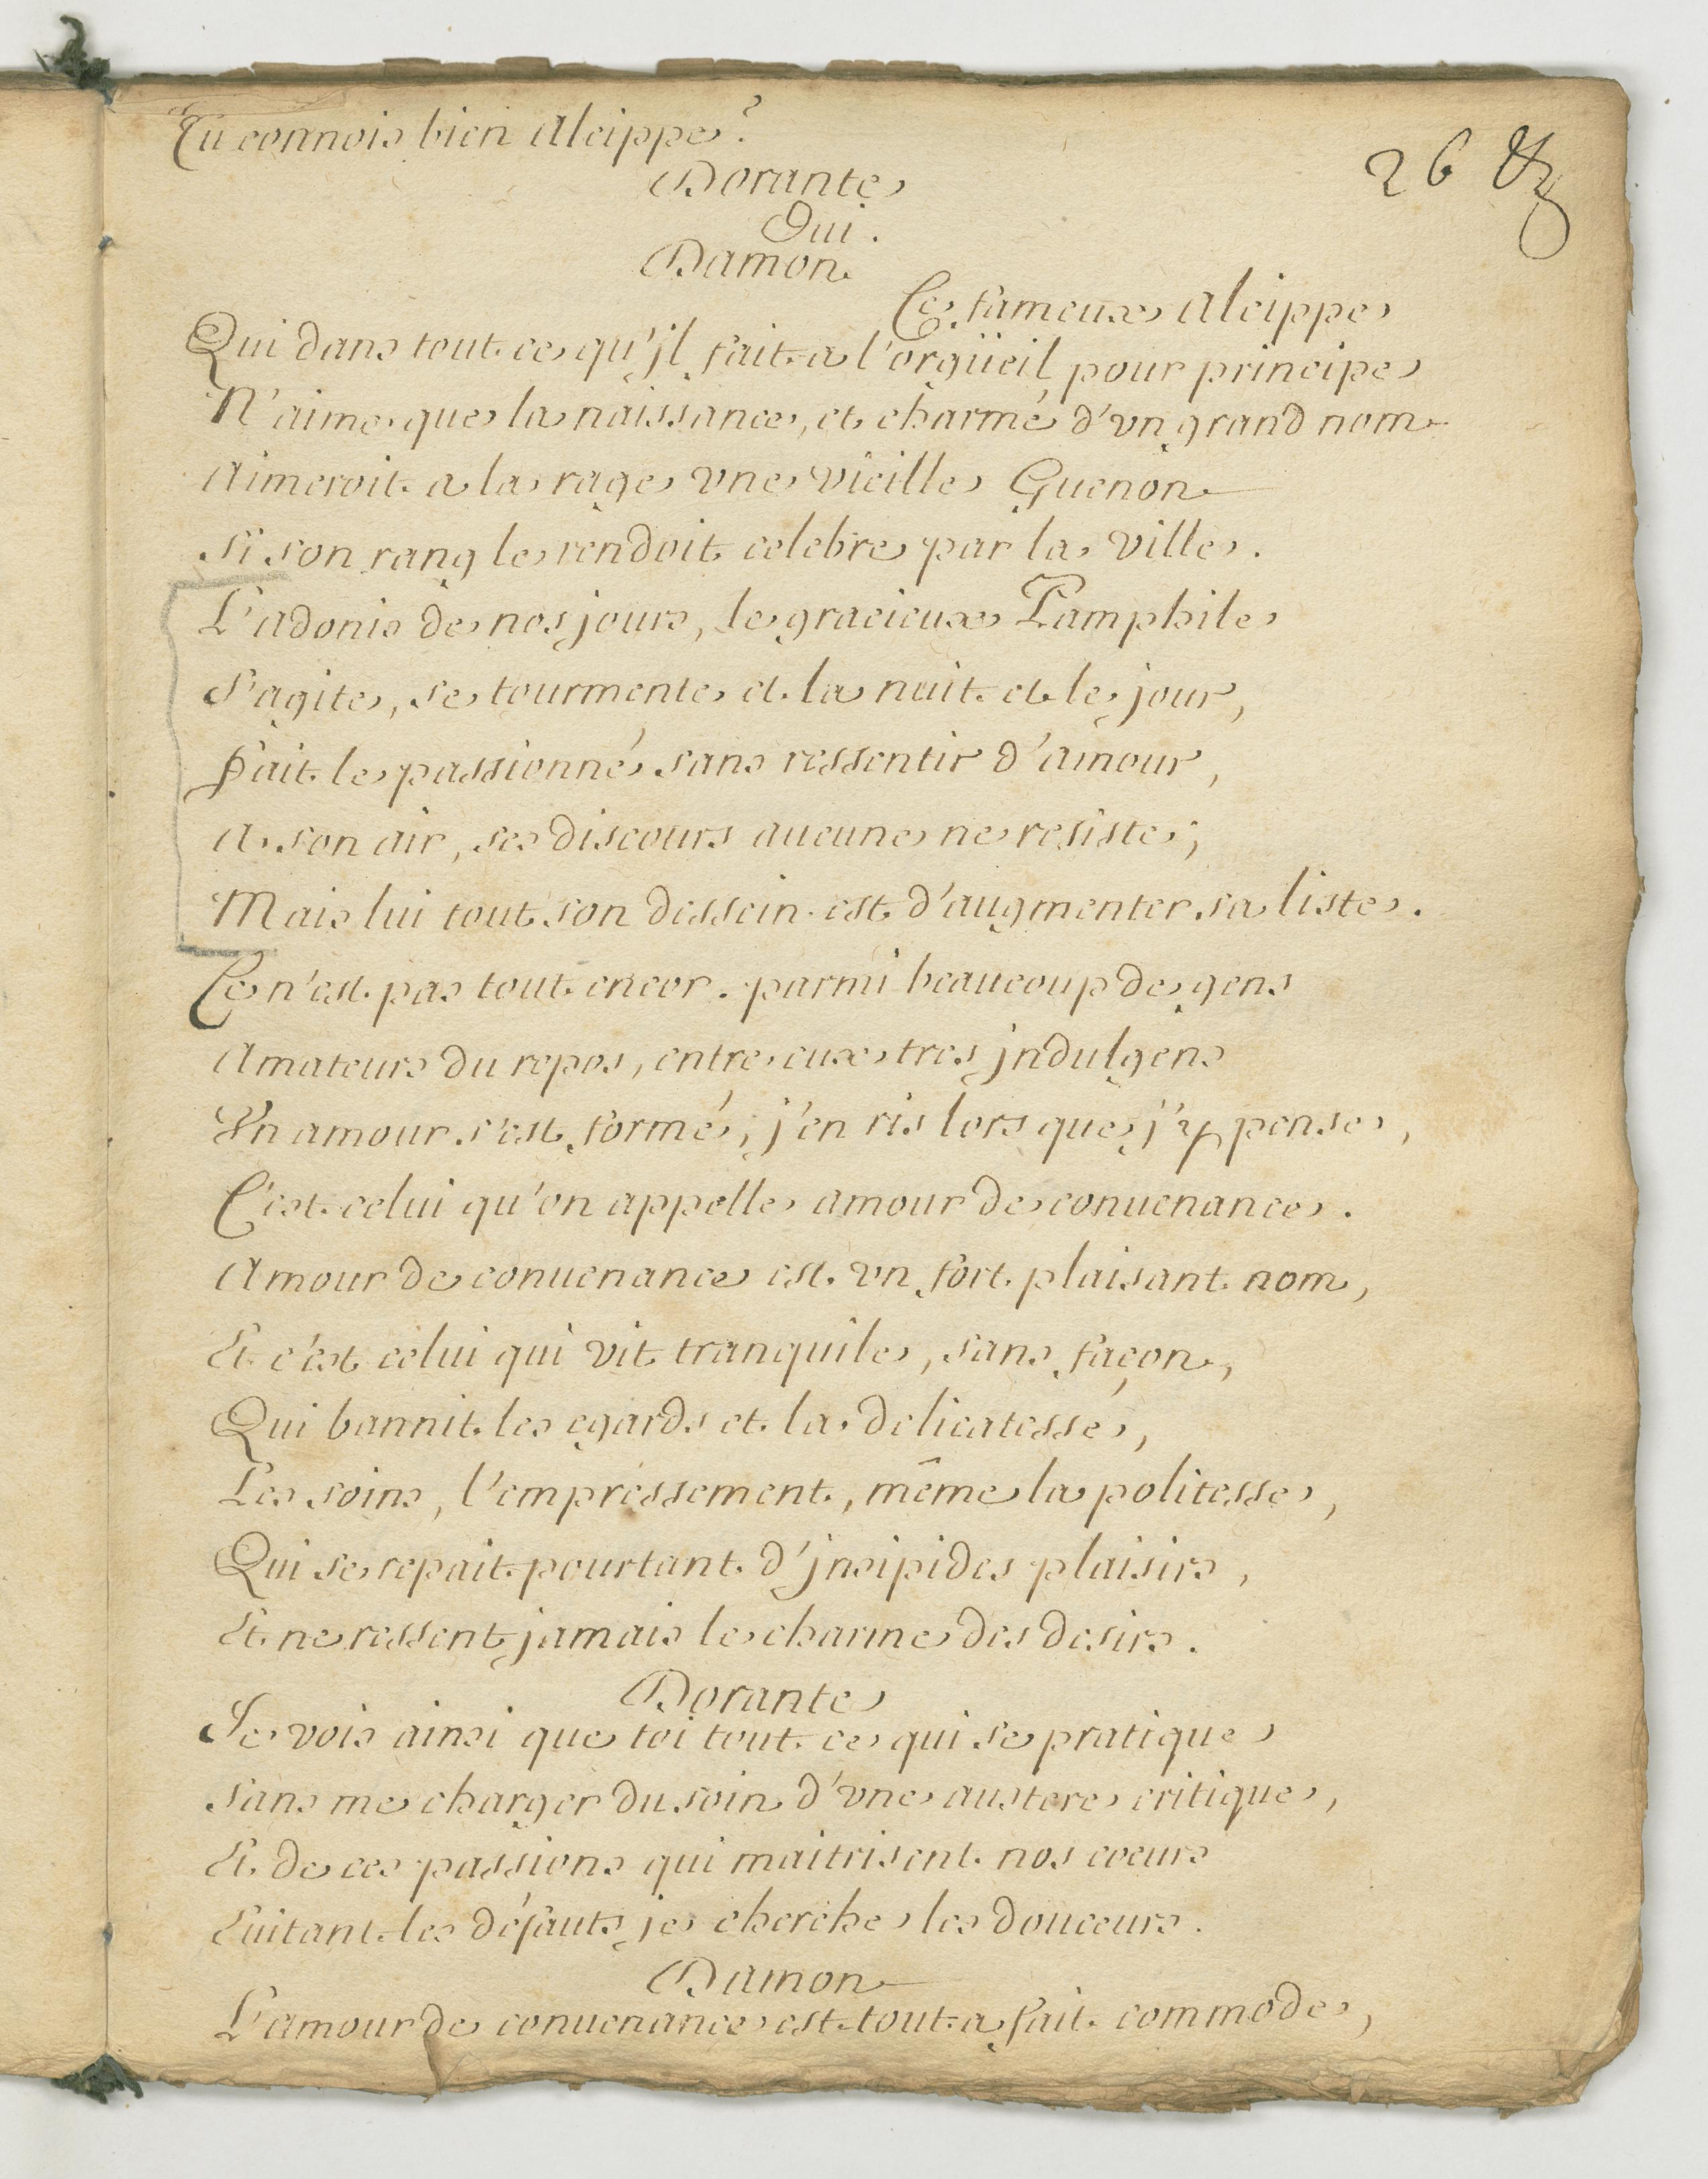 Tu connois bien Alcippe?
26
Dorante
Oui.
Damon
Ce fameux Alcippe
Qui dans tout ce qu'jl fait a l'orgüeil pour principe
N'aime que la naissance, et charmé d'vn grand nom
Aimeroit a la rage vne vieille Guenon
Si son rang le rendoit celebre par la ville.
L'adonis de nos jours, le gracieux Pamphile
S'agite, se tourmente et la nuit et le jour,
Fait le passionné sans ressentir d'amour,
A son air, ses discours aucune ne resiste;
Mais lui tout son dessein est d'augmenter sa liste.
Ce n'est pas tout encor. parmi beaucoup de gens
Amateurs du repos, entre eux tres jndulgens
Vn amour s'est formé; j'en ris lors que j'y pense,
C'est celui qu'on appelle amour de conuenance.
Amour de conuenance est vn fort plaisant nom,
Et c'est celui qui vit tranquile, sans façon,
Qui bannit les egards et la delicatesse,
Les soins, l'empressement, même la politesse,
Qui se repait pourtant d'jnsipides plaisirs,
Et ne ressent jamais le charme des desirs.
Dorante
Je vois ainsi que toi tout ce qui se pratique
Sans me charger du soin d'vne austere critique,
Et de ces passions qui maitrisent nos coeurs
Euitant les défauts je cherche les douceurs.
Damon
L'amour de conuenance est tout a fait commode,